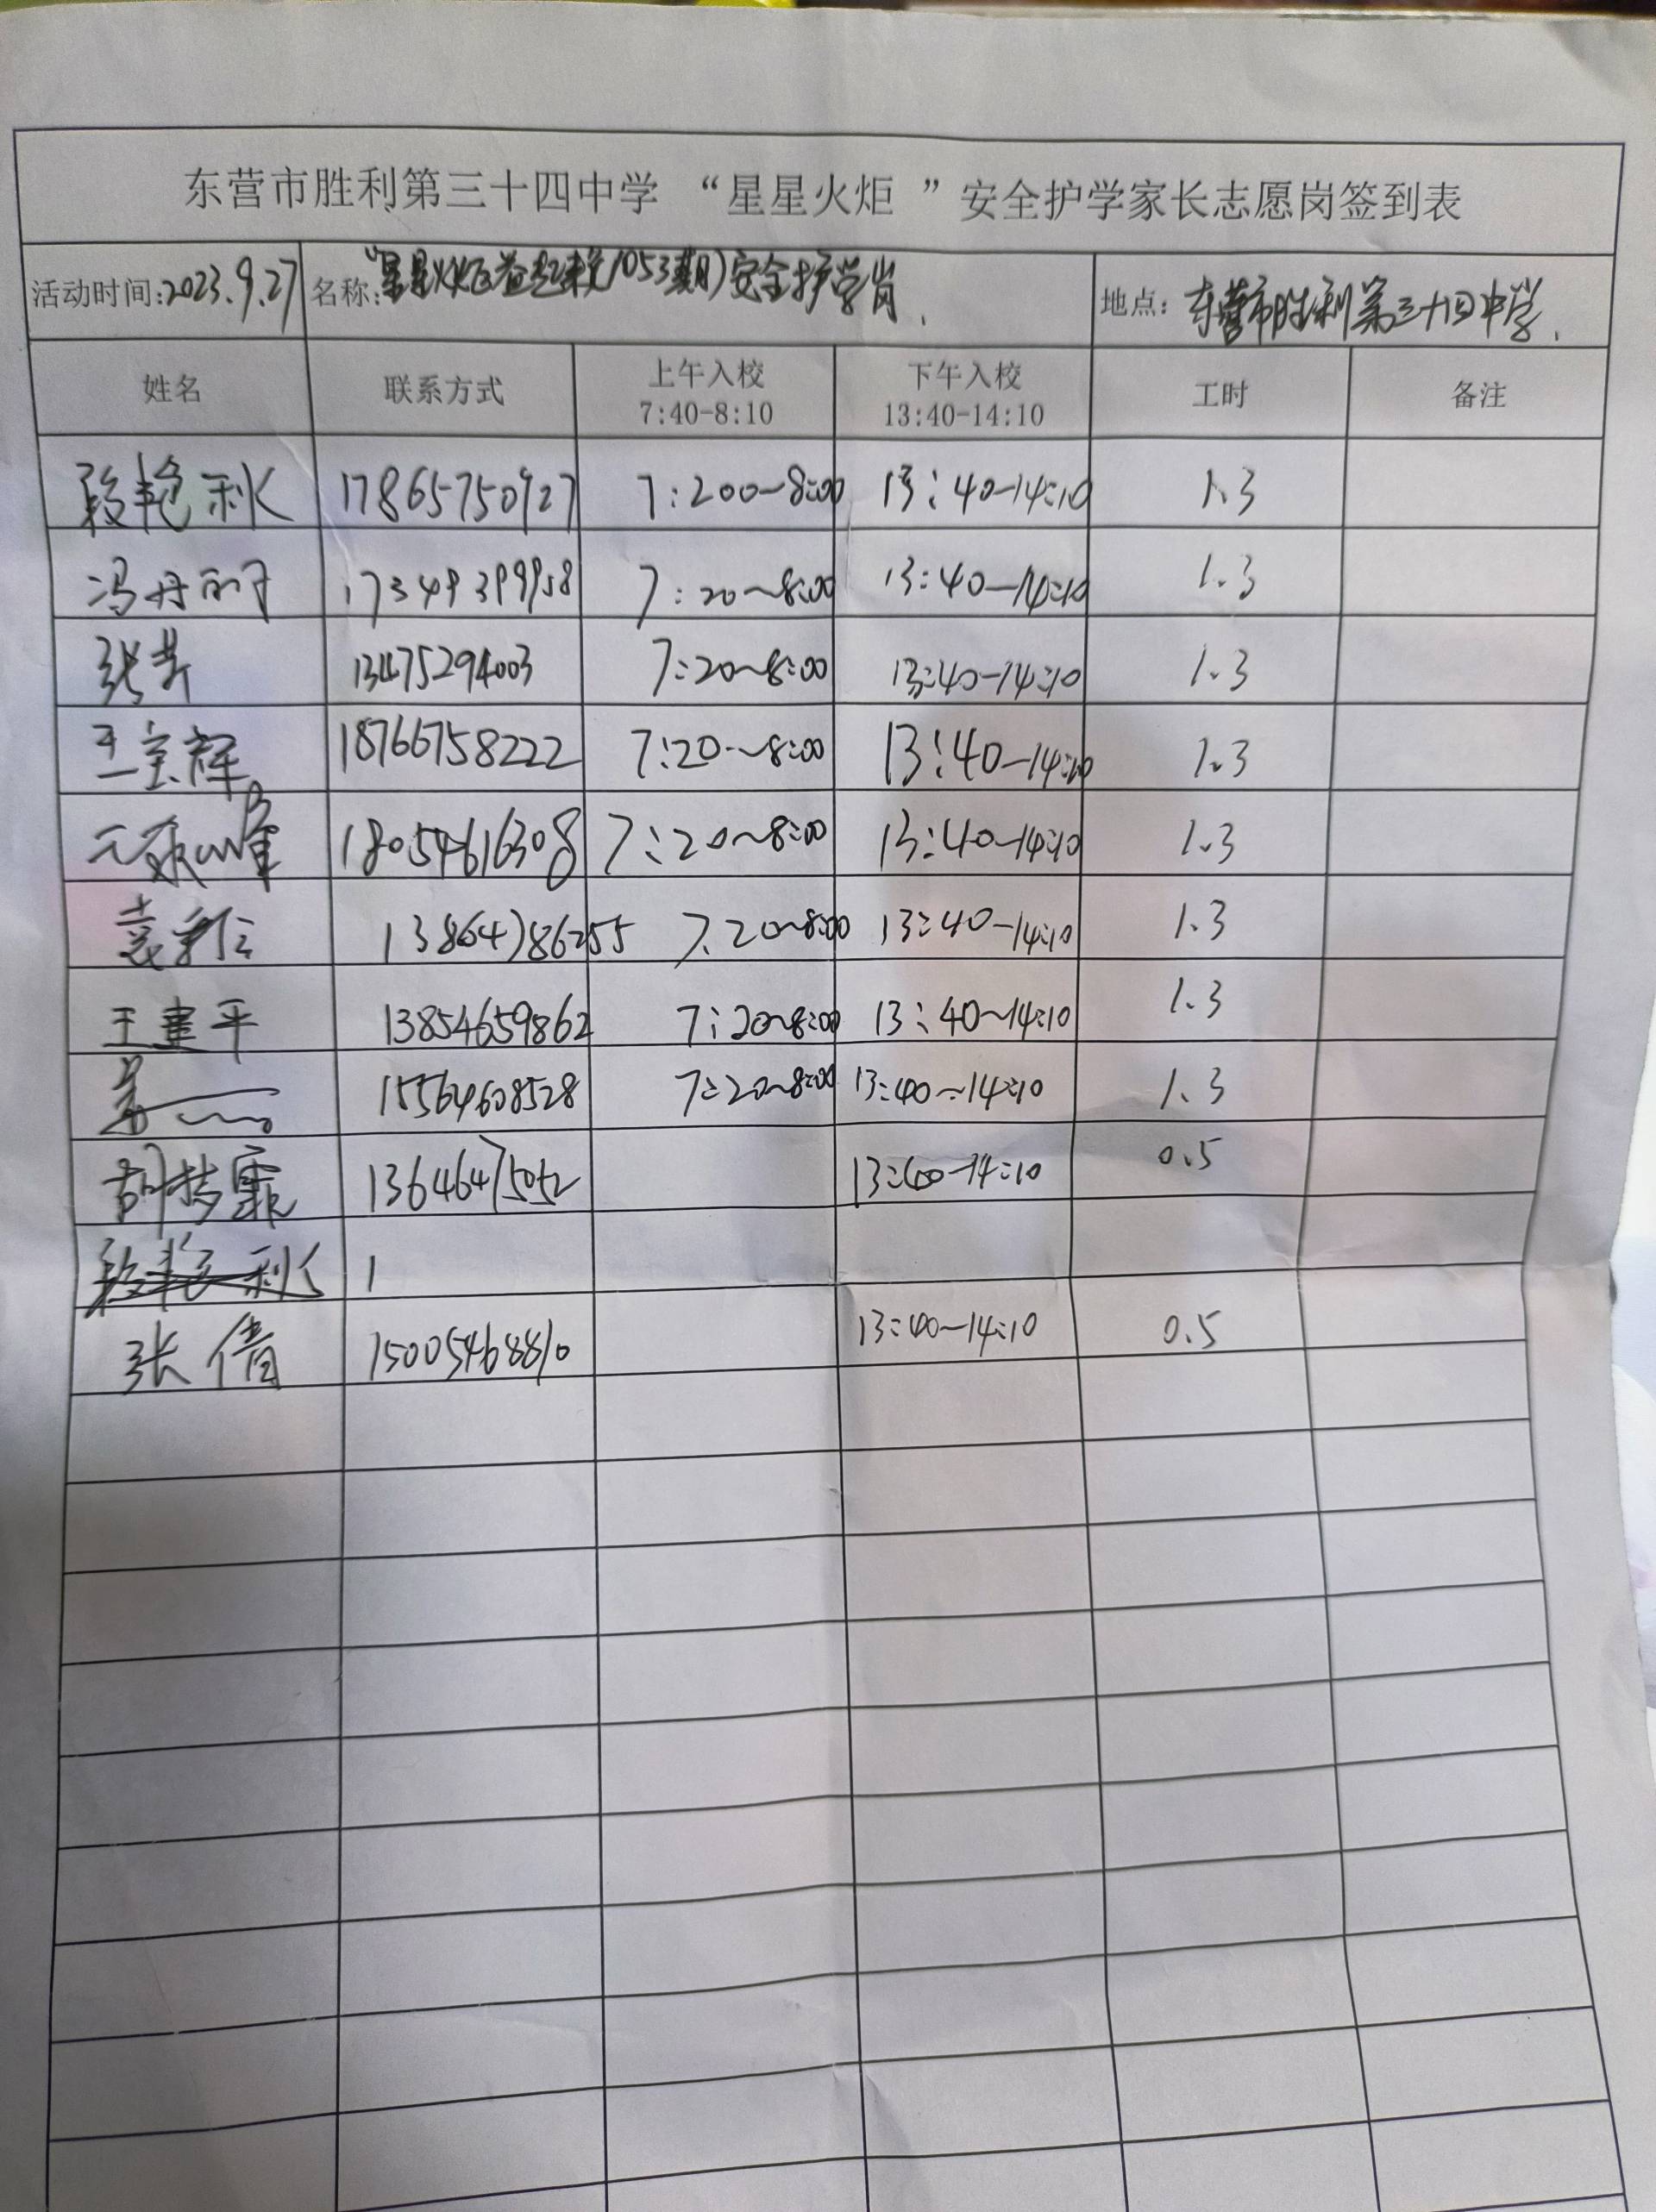 东营市胜利第三十四中学 “星星火炬 ”安全护学家长志愿岗签到表
活动时间:2023.9.27 名称:“星星火炬益起来(1053期)安全护学岗. 地点: 东营市胜利第三十四中学.
姓名 联系方式 上午入校 7:40-8:10 下午入校 13:40-14:10 工时 备注
段艳秋 17865750927 7:200~8:00 13:40-14:10 1.3
冯丹丽 17349399958 7:20~8:00 13:40-14:10 1.3
张芳 13475294003 7:20~8:00 13:40-14:10 1.3
王宝辉 18766758222 7:20~8:00 13:40-14:10 1.3
18054616308 7:20~8:00 13:40-14:10 1.3
13864786255 7.20~8:00 13:40-14:10 1.3
王建平 13854659862 7:20~8:00 13:40~14:10 1.3
15564608528 7:20~8:00 13:40-14:10 1.3
胡梦霏 13646475052 13:40-14:10 0.5
段艳秋 1
张倩 15005468810 13:40-14:10 0.5